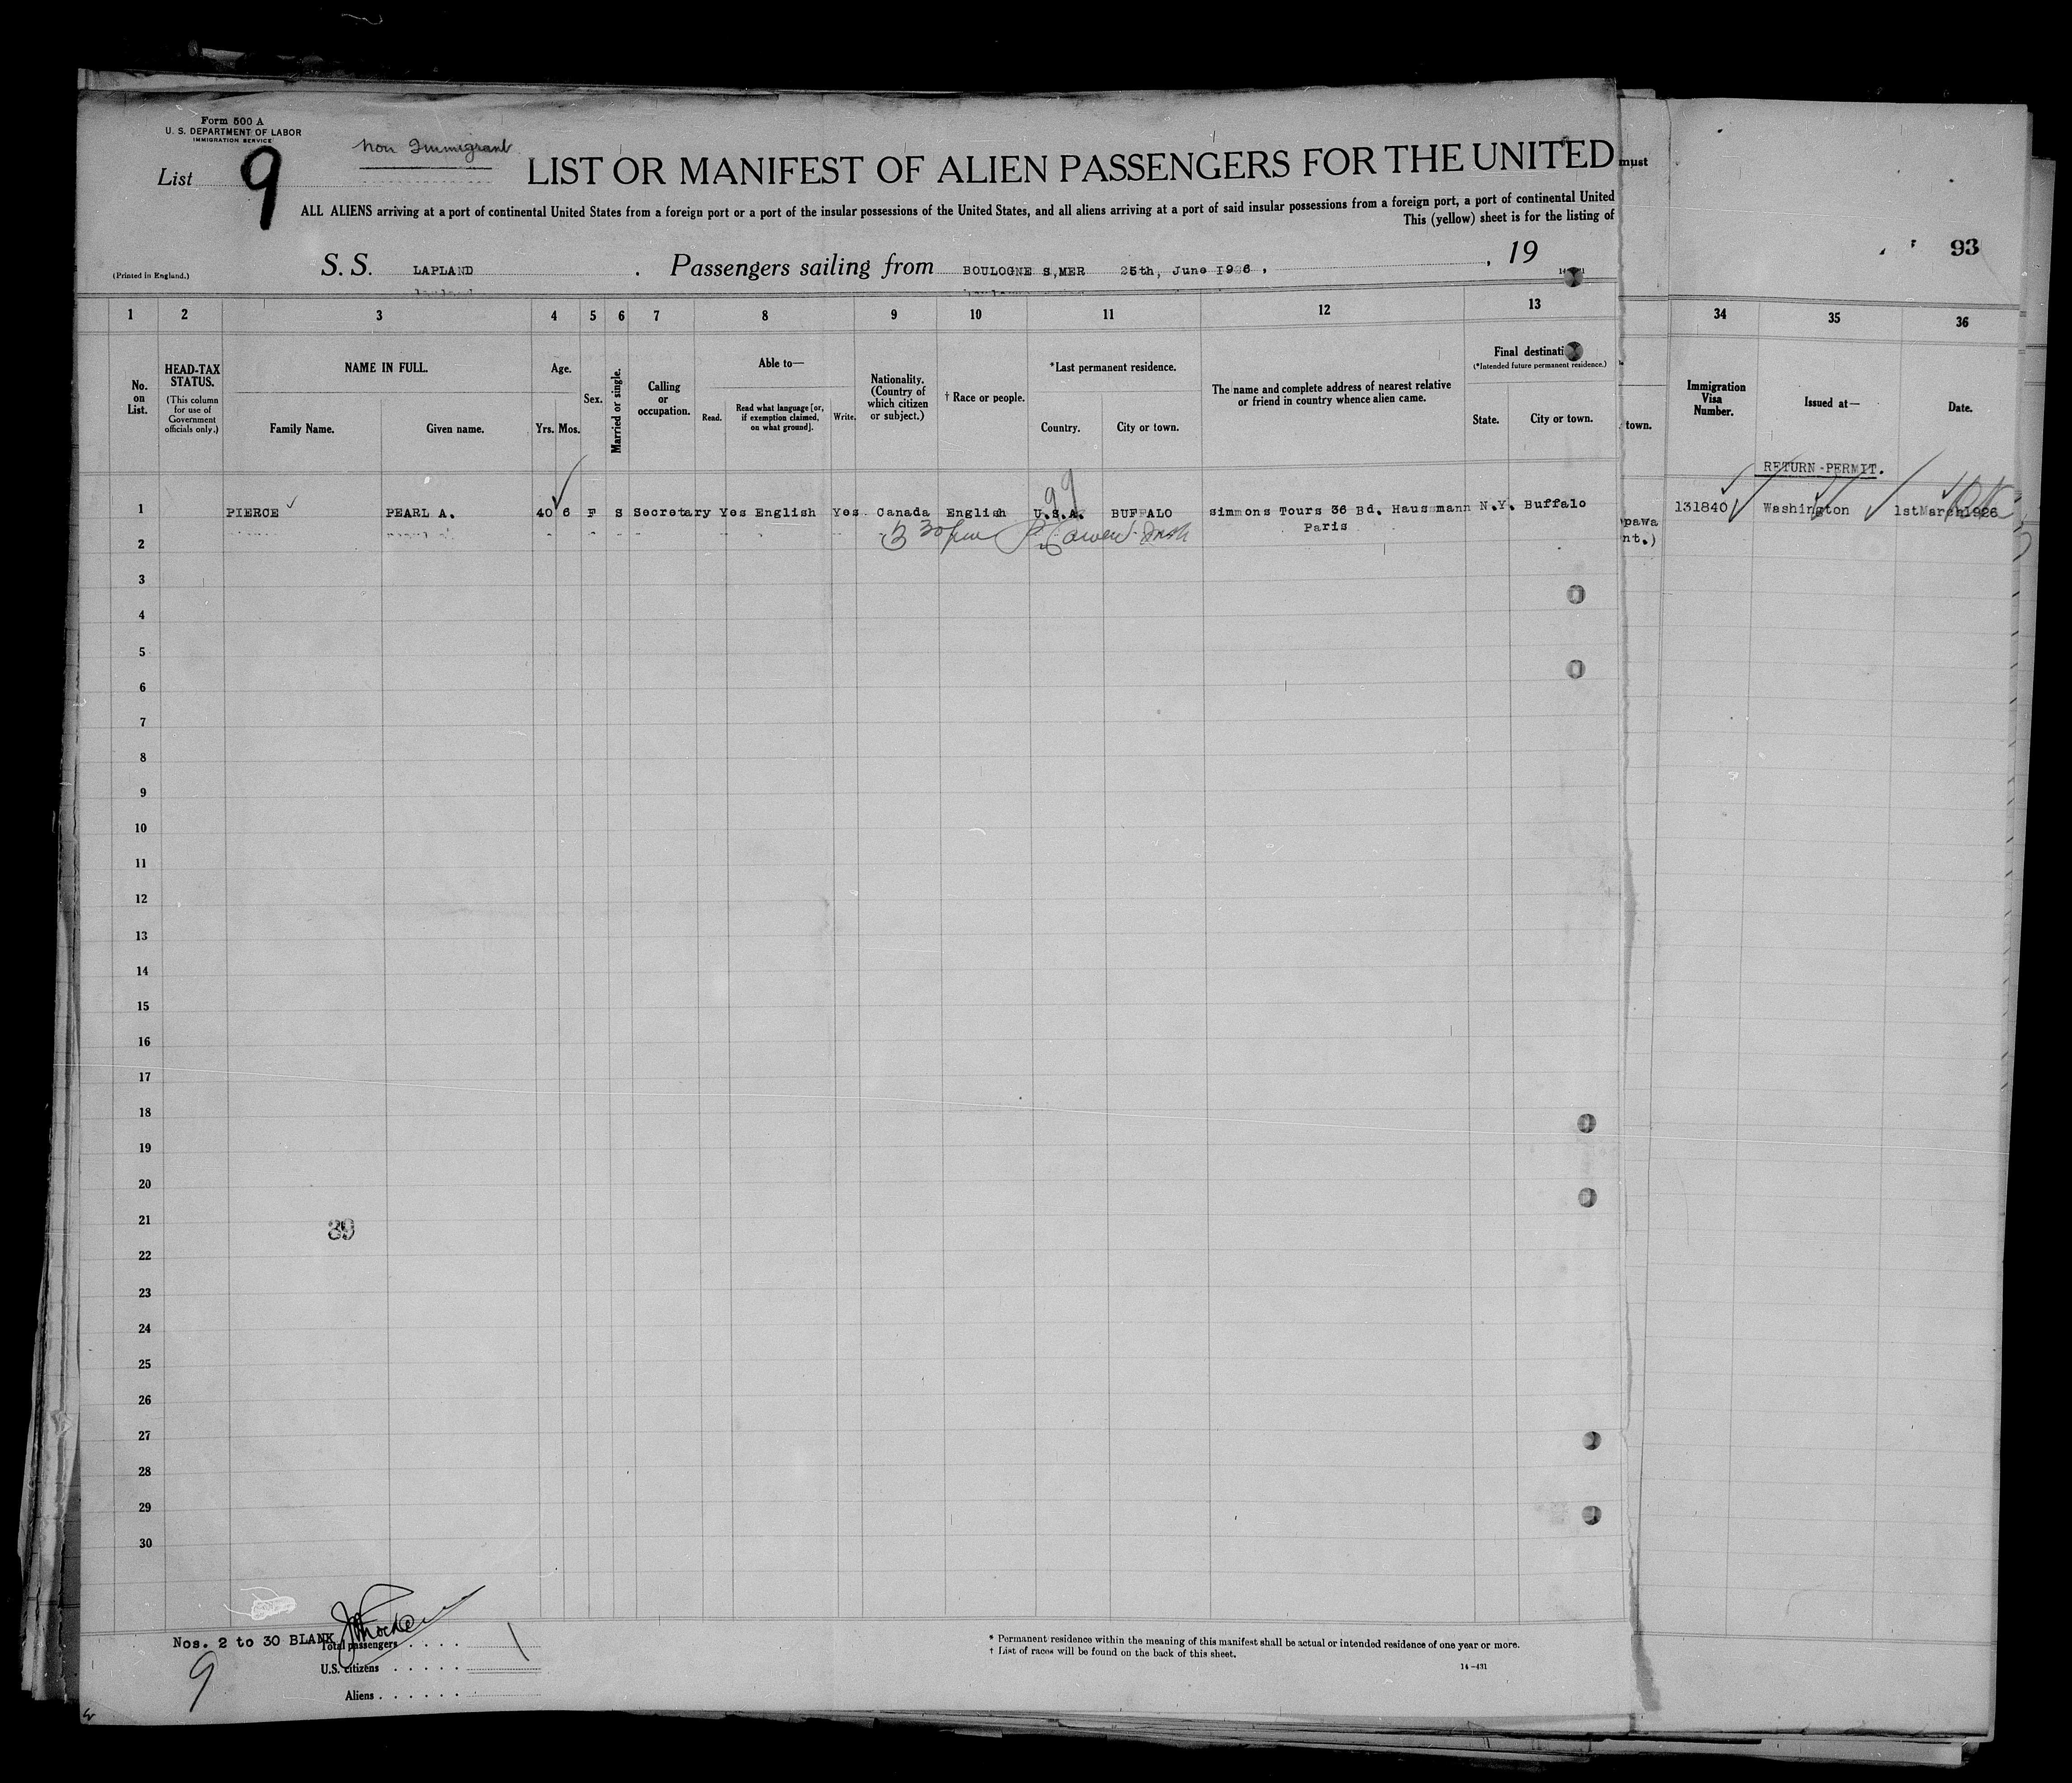 Form 500 A
U. S. DEPARTMENT OF LABOR
IMMIGRATION SERVICE
Non Immigrant
List 9
LIST OR MANIFEST OF ALIEN PASSENGERS FOR THE UNITED
must
ALL ALIENS arriving at a port of continental United States from a foreign port or a port of the insular possessions of the United States, and all aliens arriving at a port of said insular possessions from a foreign port, a port of continental United
This (yellow) sheet is for the listing of
93
(Printed in England.)
S. S. LAPLAND . Passengers sailing from BOULOGNE S,MER 25th, June 1926 , , 19
1 2 3 4 5 6 7 8 9 10 11 12 13 34 35 36
No. on List.
HEAD-TAX STATUS.
(This column for use of Government officials only.)
NAME IN FULL.
Family Name. Given name.
Age.
Yrs. Mos.
Sex.
Married or single.
Calling or occupation.
Able to—
Read. Read what language [or, if exemption claimed, on what ground]. Write.
Nationality. (Country of which citizen or subject.)
† Race or people.
*Last permanent residence.
Country. City or town.
The name and complete address of nearest relative or friend in country whence alien came.
Final destinati
(*Intended future permanent residence.)
State. City or town.
town.
Immigration Visa Number.
Issued at—
Date.
RETURN-PERMIT.
99
1 PIERCE PEARL A. 40 6 F S Secretary Yes English Yes Canada English U.S.A. BUFFALO simmons Tours 36 Bd. Haussmann N.Y. Buffalo 131840 Washington 1stMarch1926
Paris
pawa
nt.)
2
3
4
5
6
7
8
9
10
11
12
13
14
15
16
17
18
19
20
21
39
22
23
24
25
26
27
28
29
30
Nos. 2 to 30 BLANK
Total passengers . . . .
U.S. citizens . . . . . .
Aliens . . . . . .
9
* Permanent residence within the meaning of this manifest shall be actual or intended residence of one year or more.
† List of races will be found on the back of this sheet.
14-431